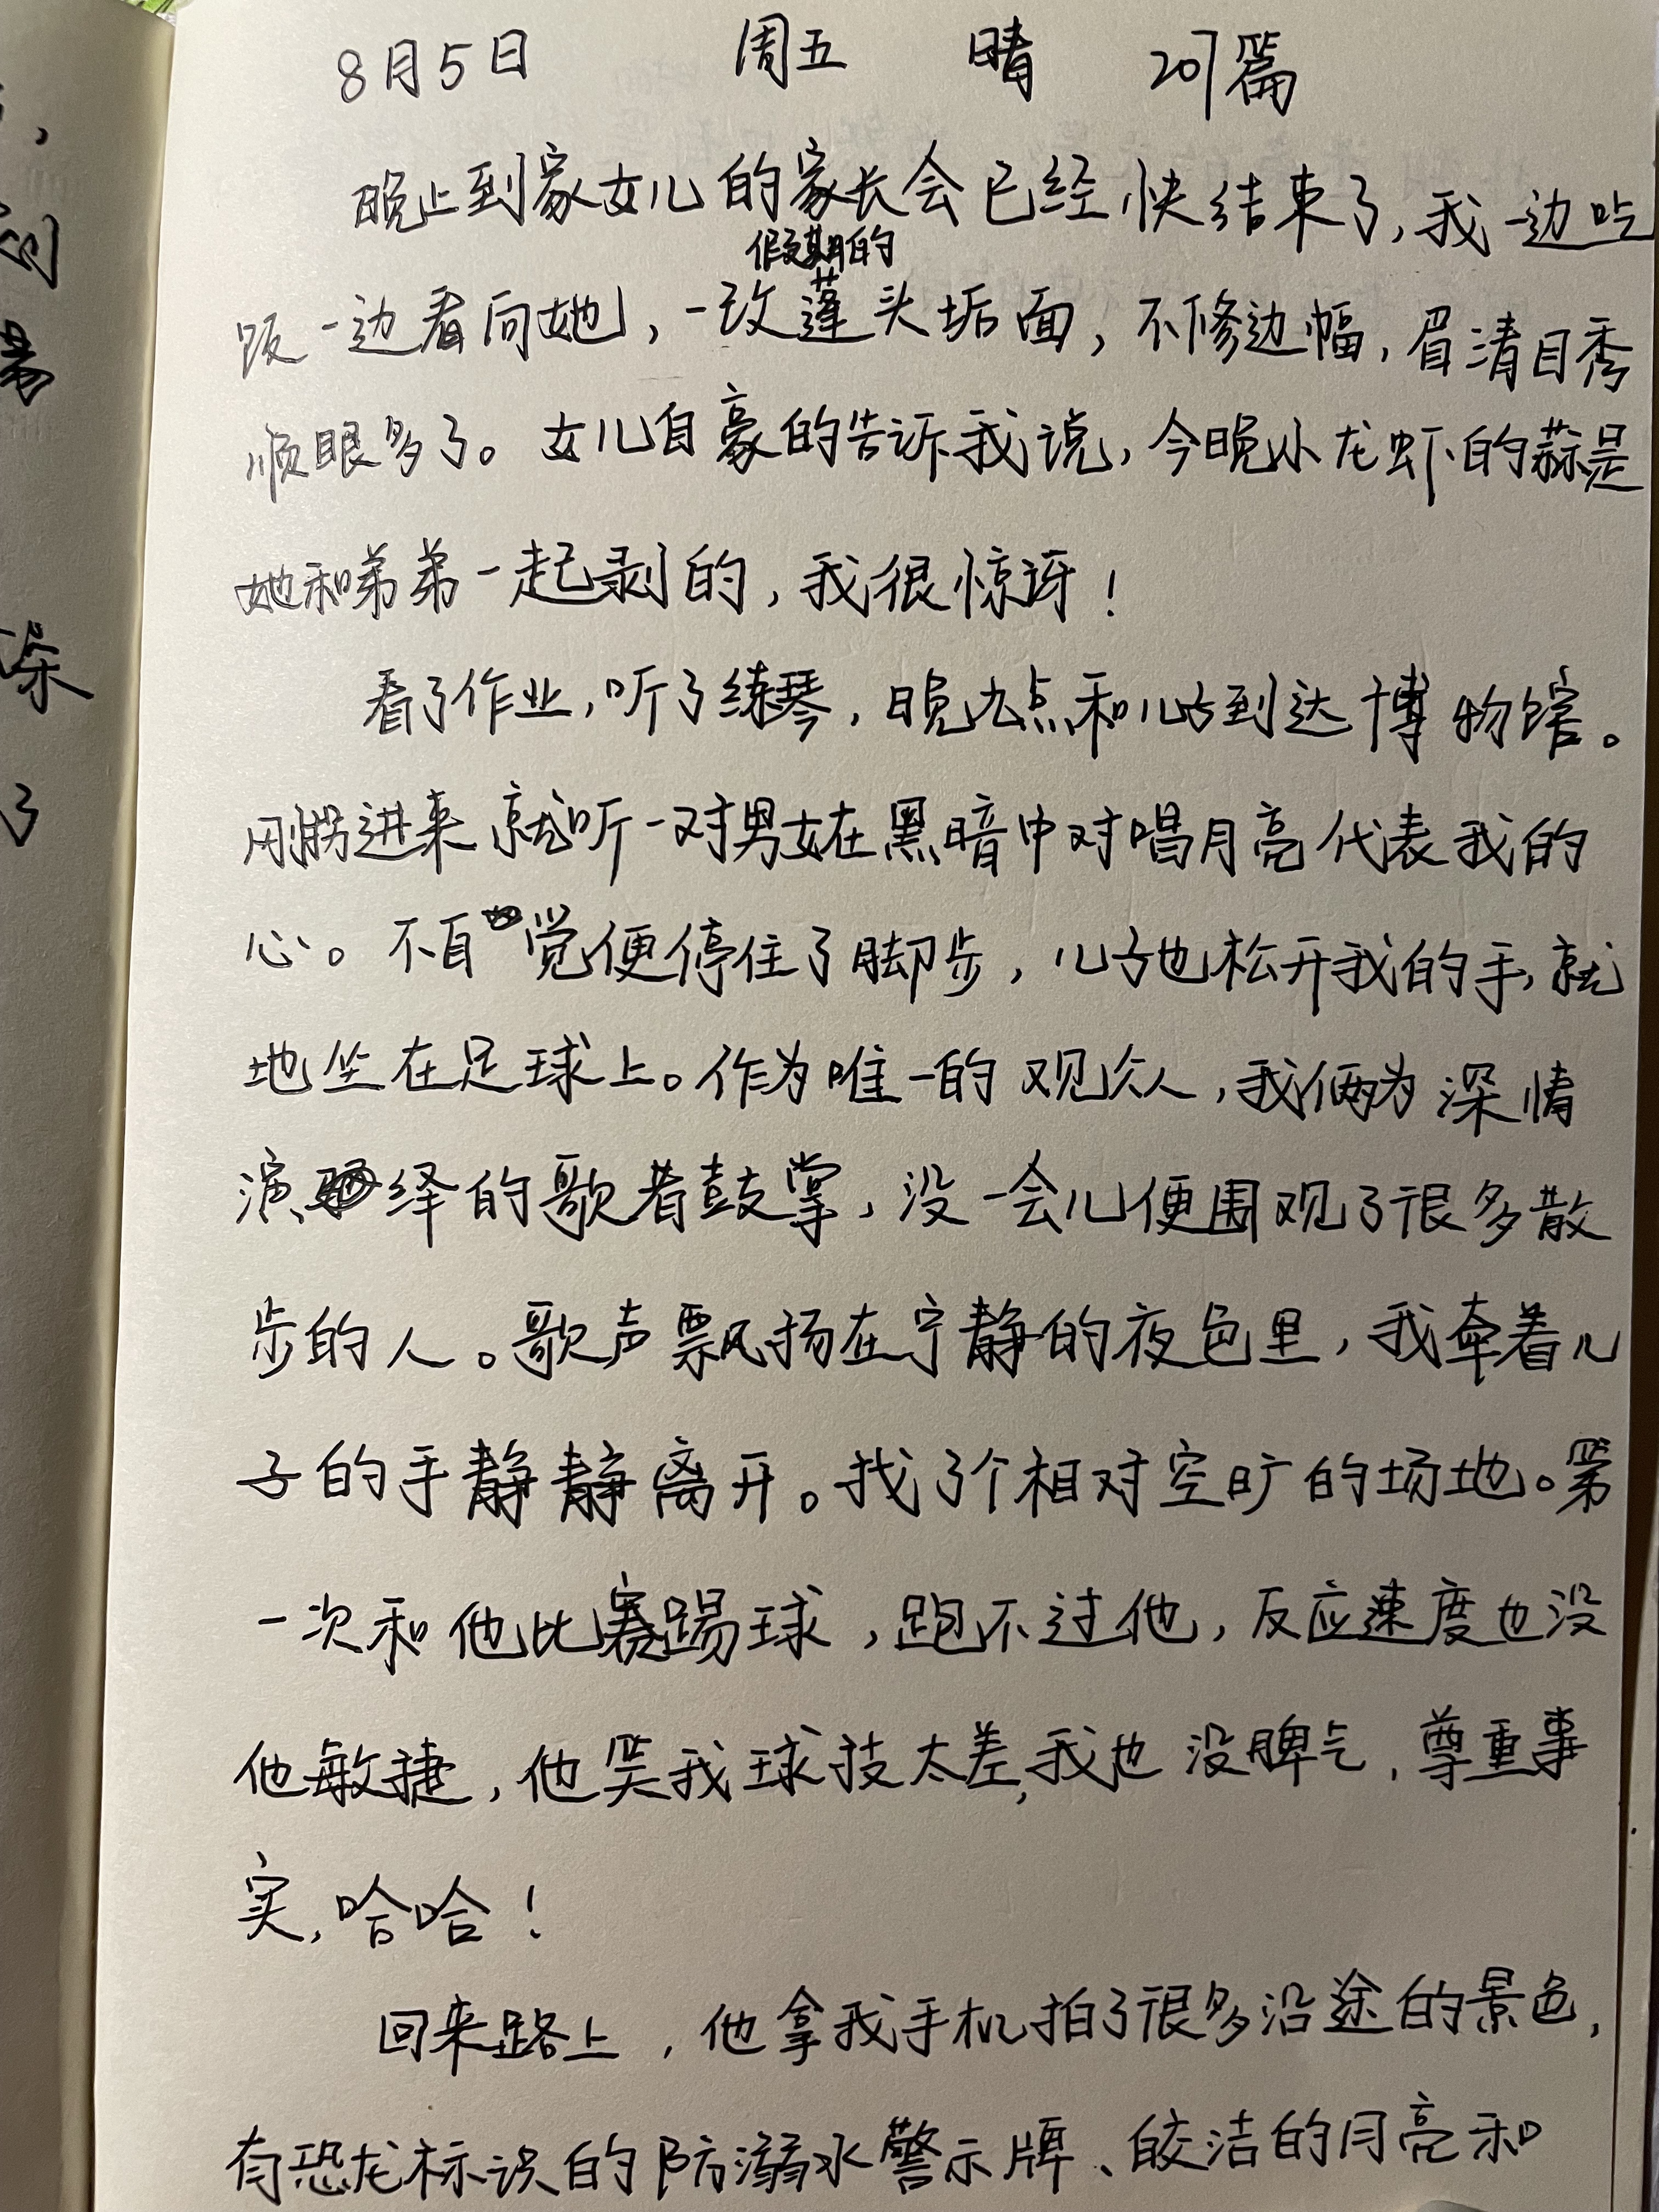 8月5日 周五 晴 207篇
晚上到家女儿的家长会已经快结束了,我一边吃
假期的
饭一边看向她,一改蓬头垢面,不修边幅,眉清目秀
顺眼多了。女儿自豪的告诉我说,今晚小龙虾的蒜是
她和弟弟一起剥的,我很惊讶!
看了作业,听了练琴,晚九点和儿子到达博物馆。
刚拐进来就听一对男女在黑暗中对唱月亮代表我的
心。不自觉便停住了脚步,儿子也松开我的手,就
地坐在足球上。作为唯一的观众人,我俩为深情
演绎的歌者鼓掌,没一会儿便围观了很多散
步的人。歌声飘扬在宁静的夜色里,我牵着儿
子的手静静离开。找了个相对空旷的场地。第
一次和他比赛踢球,跑不过他,反应速度也没
他敏捷,他笑我球技太差,我也没脾气,尊重事
实,哈哈!
回来路上,他拿我手机拍了很多沿途的景色,
有恐龙标识的防溺水警示牌、皎洁的月亮和